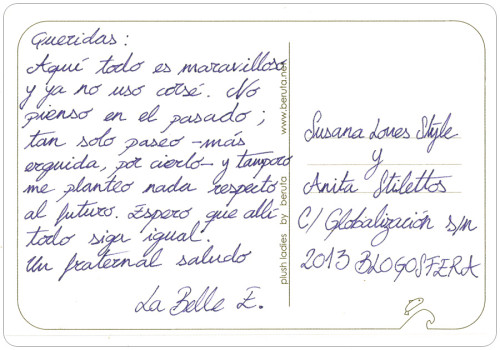 Queridas:
Aquí todo es maravilloso
y ya no uso corsé. No
pienso en el pasado;
tan solo paseo -más
erguida, por cierto- y tampoco
me planteo nada respecto
al futuro. Espero que allí
todo siga igual.
Un fraternal saludo
La Belle E.
plush ladies by beruta www.beruta.net
Susana Loves Style
y
Anita Stilettos
C/ Globalización s/n
2013 BLOGOSFERA